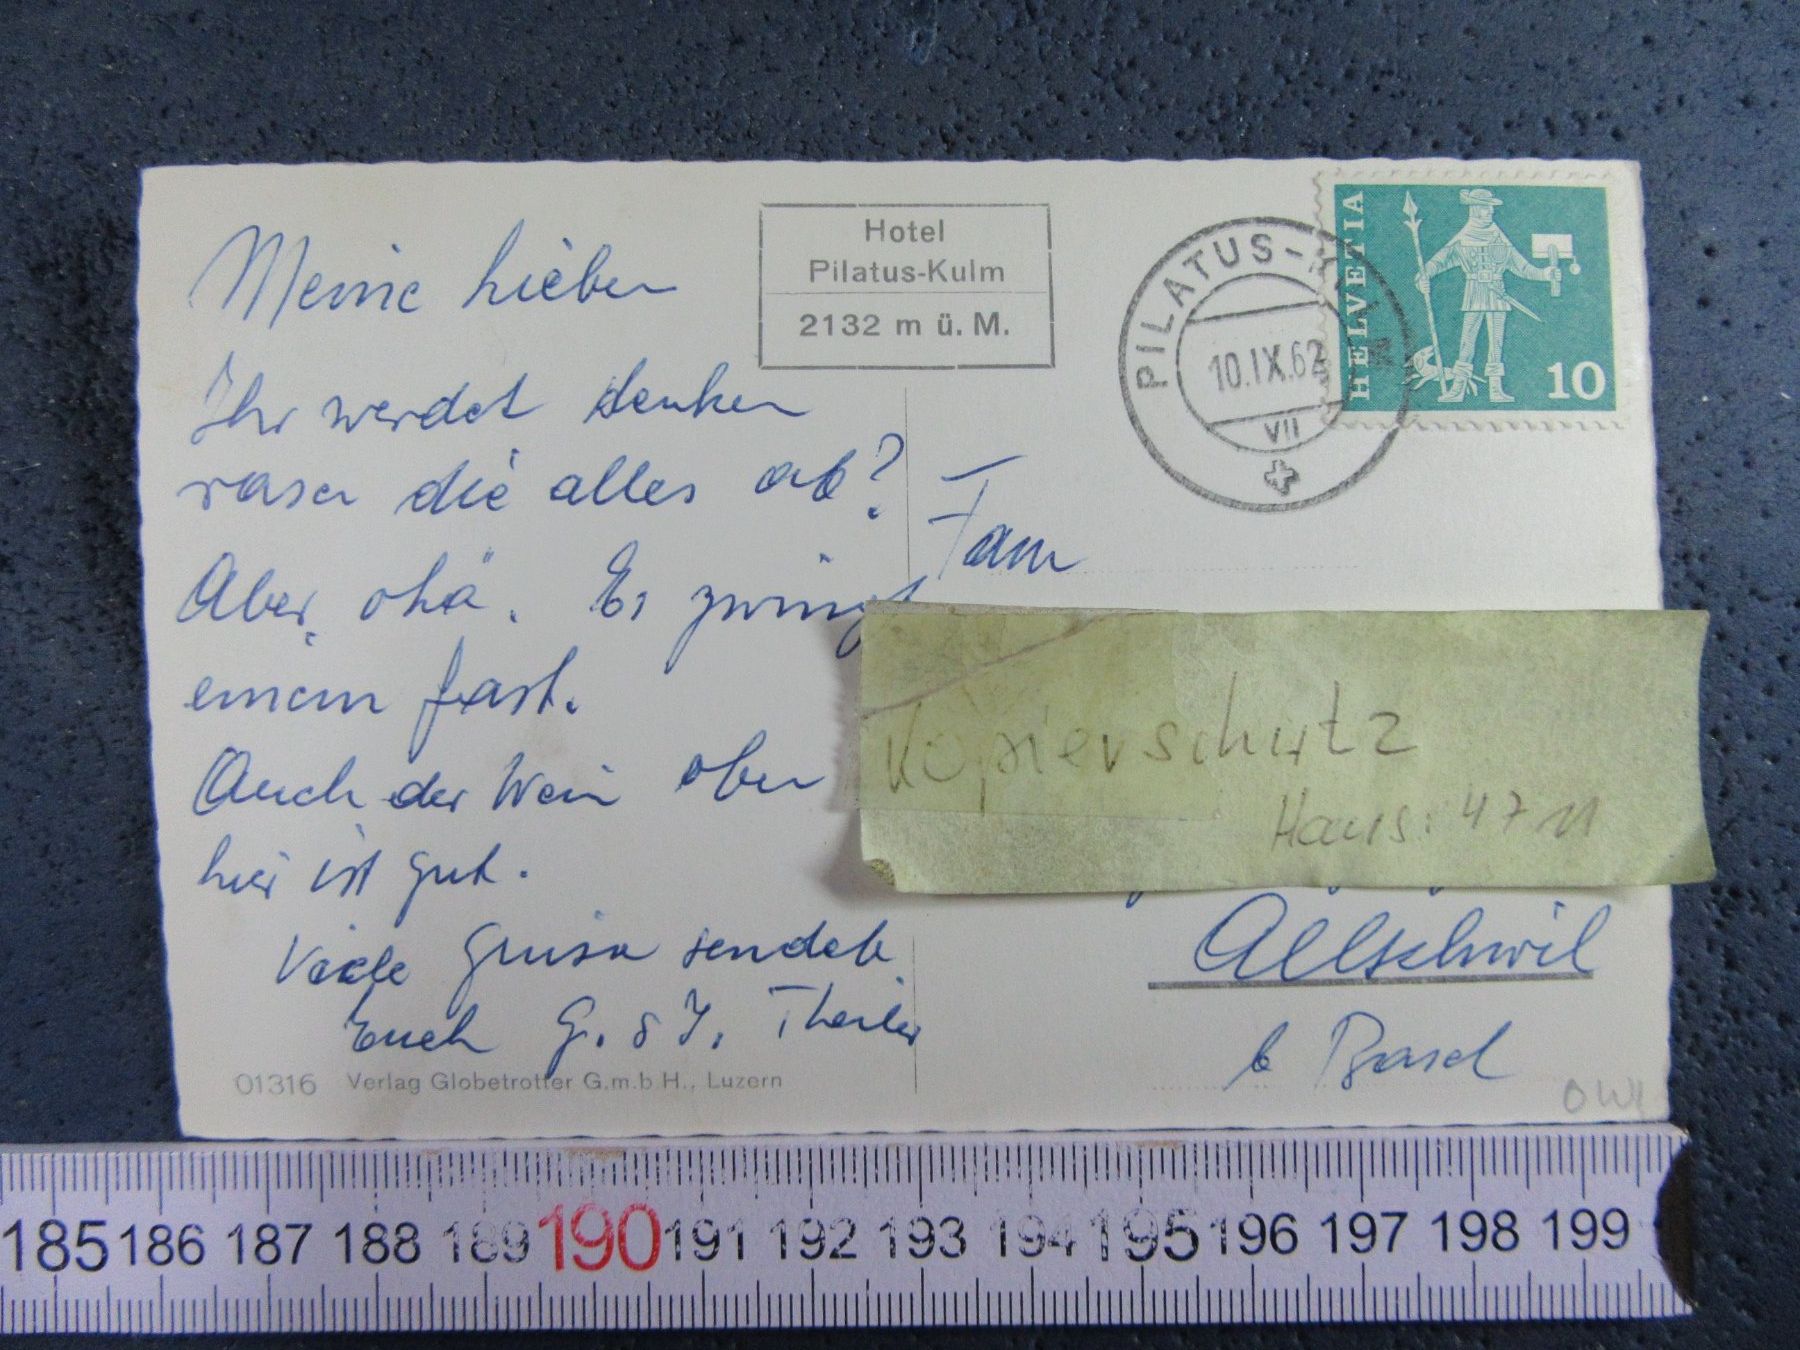 Meine Lieben
Ihr werdet denken
rasen die alles ab?
Aber ohä. Es zwingt
einem fast.
Auch der Wein oben
hier ist gut.
Viele Grüsse sendet
Euch G. & J. Theiler
01316 Verlag Globetrotter G.m.b.H., Luzern
Hotel
Pilatus-Kulm
2132 m ü. M.
PILATUS-KU
10.IX.62
VII
HELVETIA
10
Fam
Kopierschutz
Haus: 4711
Allschwil
b Basel
OWI
185 186 187 188 189 190 191 192 193 194 195 196 197 198 199